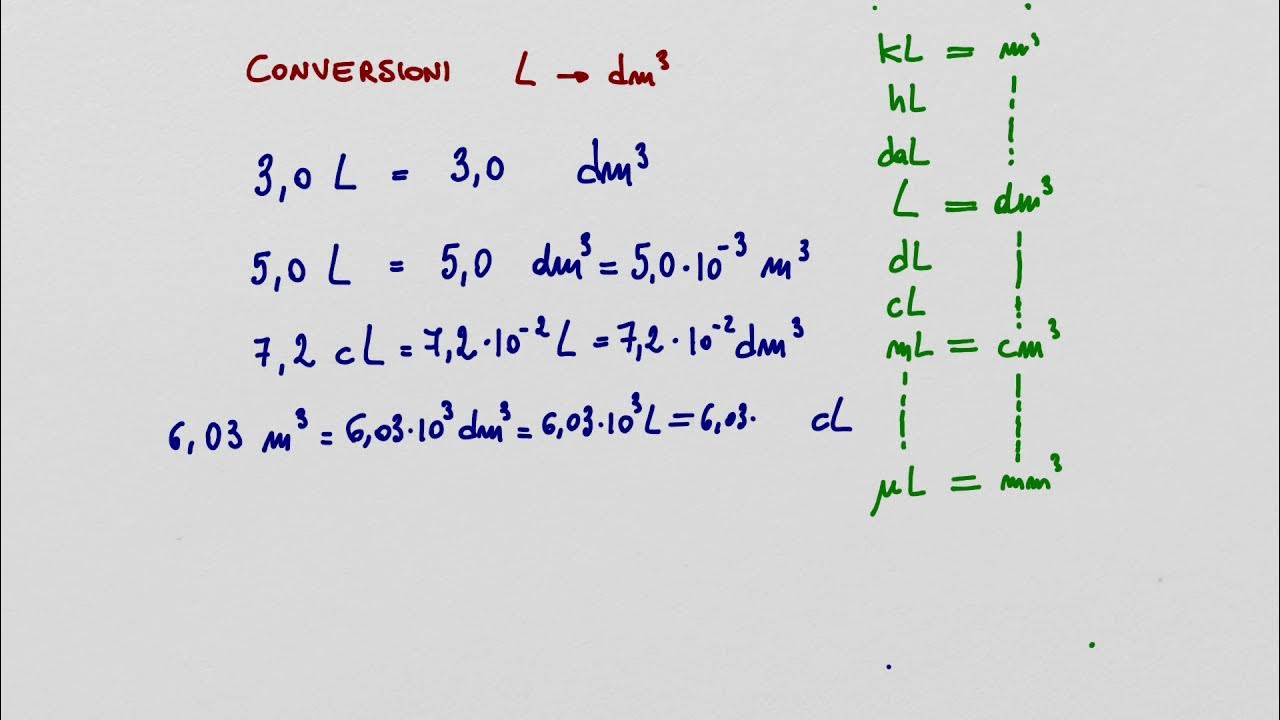 CONVERSIONI L → dm³
3,0 L = 3,0 dm³
5,0 L = 5,0 dm³ = 5,0·10⁻³ m³
7,2 cL = 7,2·10⁻² L = 7,2·10⁻² dm³
6,03 m³ = 6,03·10³ dm³ = 6,03·10³ L = 6,03· cL
kL = m³
hL
daL
L = dm³
dL
cL
mL = cm³
μL = mm³